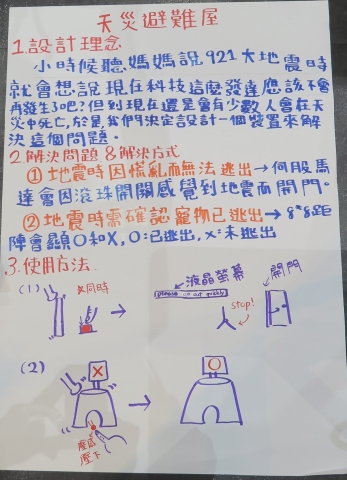 天災避難屋
1.設計理念
小時候聽媽媽說921大地震時
就會想說現在科技這麼發達應該不會
再發生了吧?但到現在還是會有少數人會在天
災中死亡,於是,我們決定設計一個裝置來解
決這個問題。
2.解決問題&解決方式
①地震時因慌亂而無法逃出→伺服馬
達會因滾珠開關感覺到地震而開門。
②地震時需確認寵物已逃出→8*8距
陣會顯O和X,O:已逃出,X:未逃出
3.使用方法
(1) 同時 → 液晶螢幕 開門
please out quickly
stop!
(2) X → O
壓感
壓下